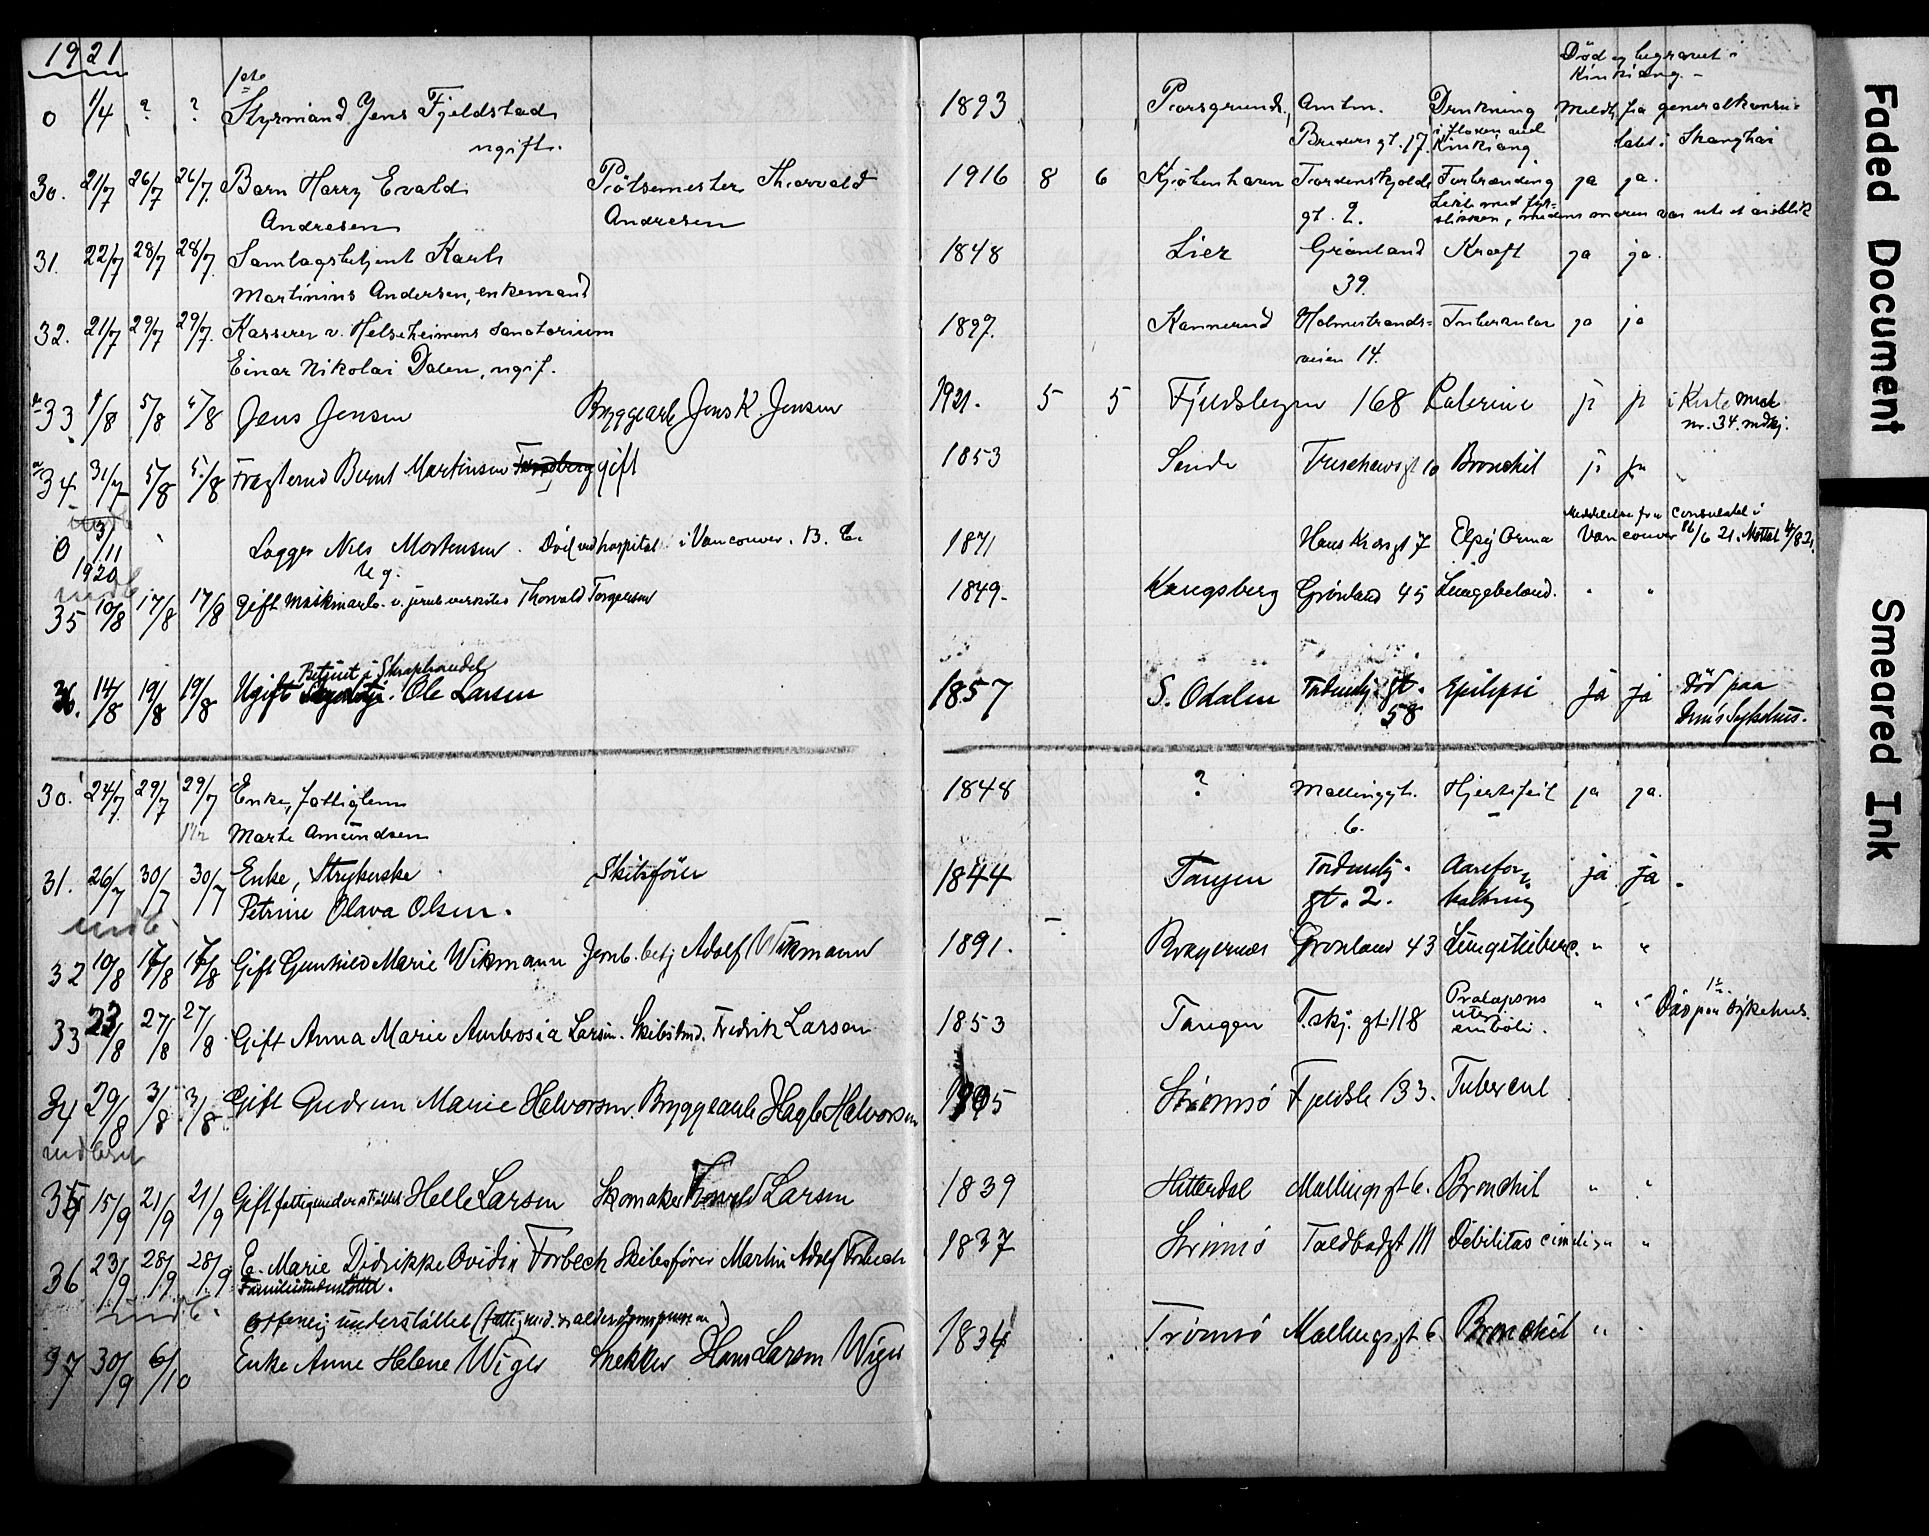 1921
Død og begravet i
Kinkiang.
0 1/4 ? ? 1ste Styrmand Jens Fjeldstad 1893 Porsgrund, Amtm. Drukning Meldt fra generalkonsu-
ugift. gt. 17. Kinkiang latet i Shanghai
30. 21/7 26/7 26/7. Barn Harry Evald Thorvald 1916 8 6 Kjøbenhavn Tordenskjolds Forbrænding ja ja.
Andresen Andresen gt. 2. moren var ute et øieblik
31. 22/7 28/7 28/7. Samlagsbetjent Karl 1848 Lier Grønland Kræft ja ja.
Martinius Andersen, enkemand 39.
32. 21/7 29/7 29/7. Kasserer v. Helseheimens Sanatorium 1897. Holmestrands- Tuberkulose ja ja
Einar Nikolai Dalen, ugif. veien 14.
33 1/8 5/8 5/8 Jens Jensen Bryggearb Jens K. Jensen 1921. 5 5 168 ja ja i Kiste med
nr. 34.
34 31/7 5/8 5/8 Bernt Martinsen gift 1853 Sande Bronchit ja ja
Meddelelse fra Consulatet i
0 3/11 Logger Nils Mortensen. Død ved hospital i Vancouver. B. C. 1871 Hans Kiærsgt 7 Vancouver 16/6 21. Mottat 4/8 21.
1920 Ug.
indb
35 10/8 17/8 17/8 Gift Maskinarb. v. jernverkstes Thorvald Torgersen 1849. Kongsberg Grønland 45 " "
Betjent i Skraphandel
36. 14/8 19/8 19/8 Ugift Ole Larsen 1857 S. Odalen Tordenskj. gt. Epilepsi ja ja Død paa
58 Sykehus.
30. 24/7 29/7 29/7 Enke, fattiglem 1848 ? Mallingsgt. Hjertefeil ja ja.
Marte Amundsen 6.
31. 26/7 30/7 30/7 Enke, Strykerske Skibsfører 1844 Tangen Tordenskj. Aarefor- ja ja.
Petrine Olava Olsen. gt. 2. kalkning
indb.
32 10/8 17/8 17/8 Gift Gunhild Marie Wikmann Jernb. betj Adolf Wikmann 1891. Bragernes Grønland 43 Lungetuberc. " "
33 23/8 27/8 27/8 Gift Anna Marie Ambrosia Larsen. Skibstmd. Fredrik Larsen 1853 Tangen T.skj. gt. 118 Prolapsus " " Død paa Sykehus.
uteri
emboli.
34 29/8 3/8 3/8 Gift Gudrun Marie Halvorsen Bryggearb Halvorsen 1895 Strømsø Fjeldsb 133. Tubercul
indberet
35 15/9 21/9 21/9 Gift fattigunderstøttet Helle Larsen Skomaker Thorvald Larsen 1839 Hitterdal Mallingsgt 6. Bronchit " "
36 23/9 28/9 28/9 E. Marie Didrikke Ovidia Forbech Skibsfører Martin Adolf Forbech 1837 Strømsø Toldbodgt 111 Debilitas " "
indb.
Offentlig understøttet (fattigund. v. alderdomspension)
37 30/9 6/10 Enke Anne Helene Wiger Snekker Hans Larsen Wiger 1834 Tromsø Mallingsgt 6 Bronchit " "
Faded Document
Smeared Ink